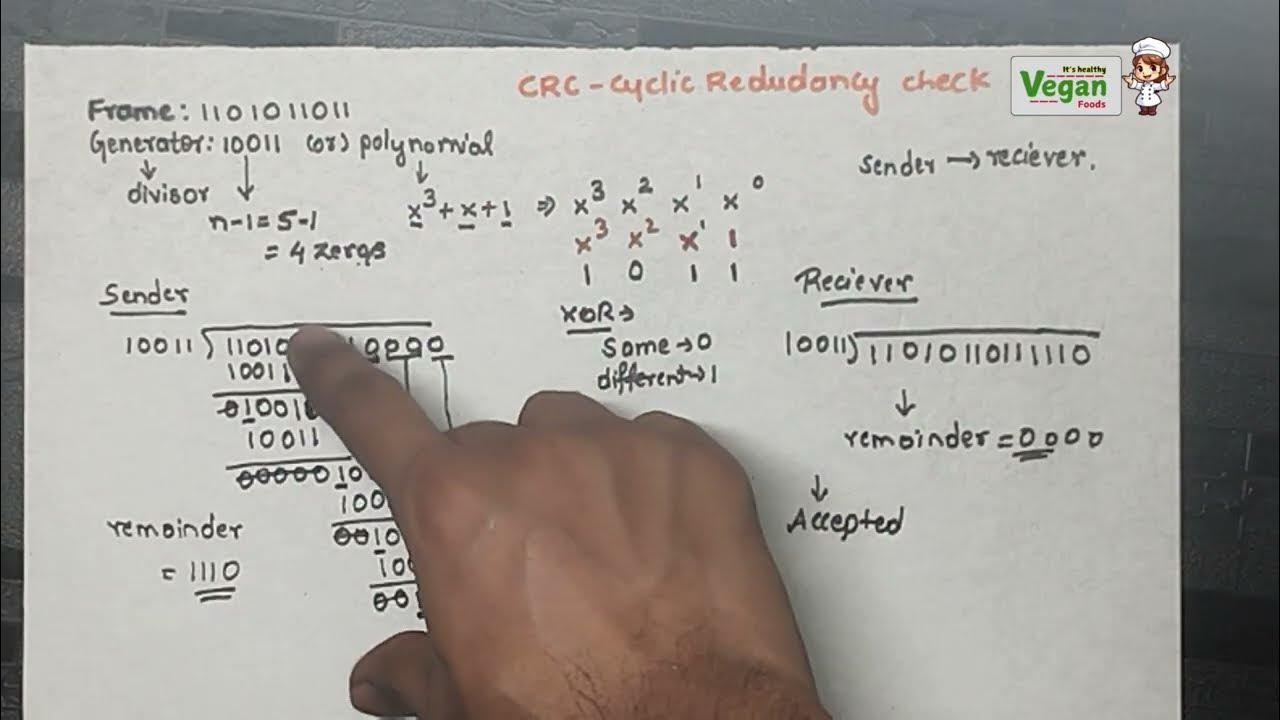 CRC - Cyclic Redudancy check
It's healthy
Vegan
Foods
Frame: 1101011011
Generator: 10011 (or) polynomial
divisor
n-1 = 5-1
= 4 zeros
x³ + x + 1 ⇒ x³ x² x¹ x⁰
x³ x² x¹ 1
1 0 1 1
Sender → reciever.
Sender
10011
10011
10011
remainder
= 1110
XOR →
Same → 0
different → 1
Reciever
10011) 11010110111110
↓
remainder = 0000
↓
Accepted